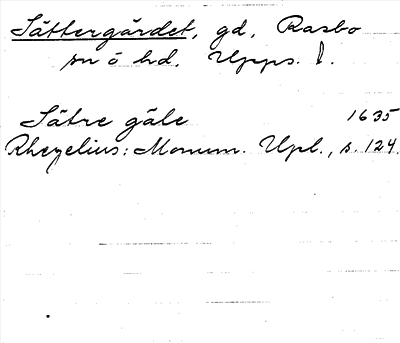 Sättergärdet, gd, Rasbo
sn o hd, Upps. l.
Sätre gäle 1635
Rhezelius: Monum. Upl., s. 124.